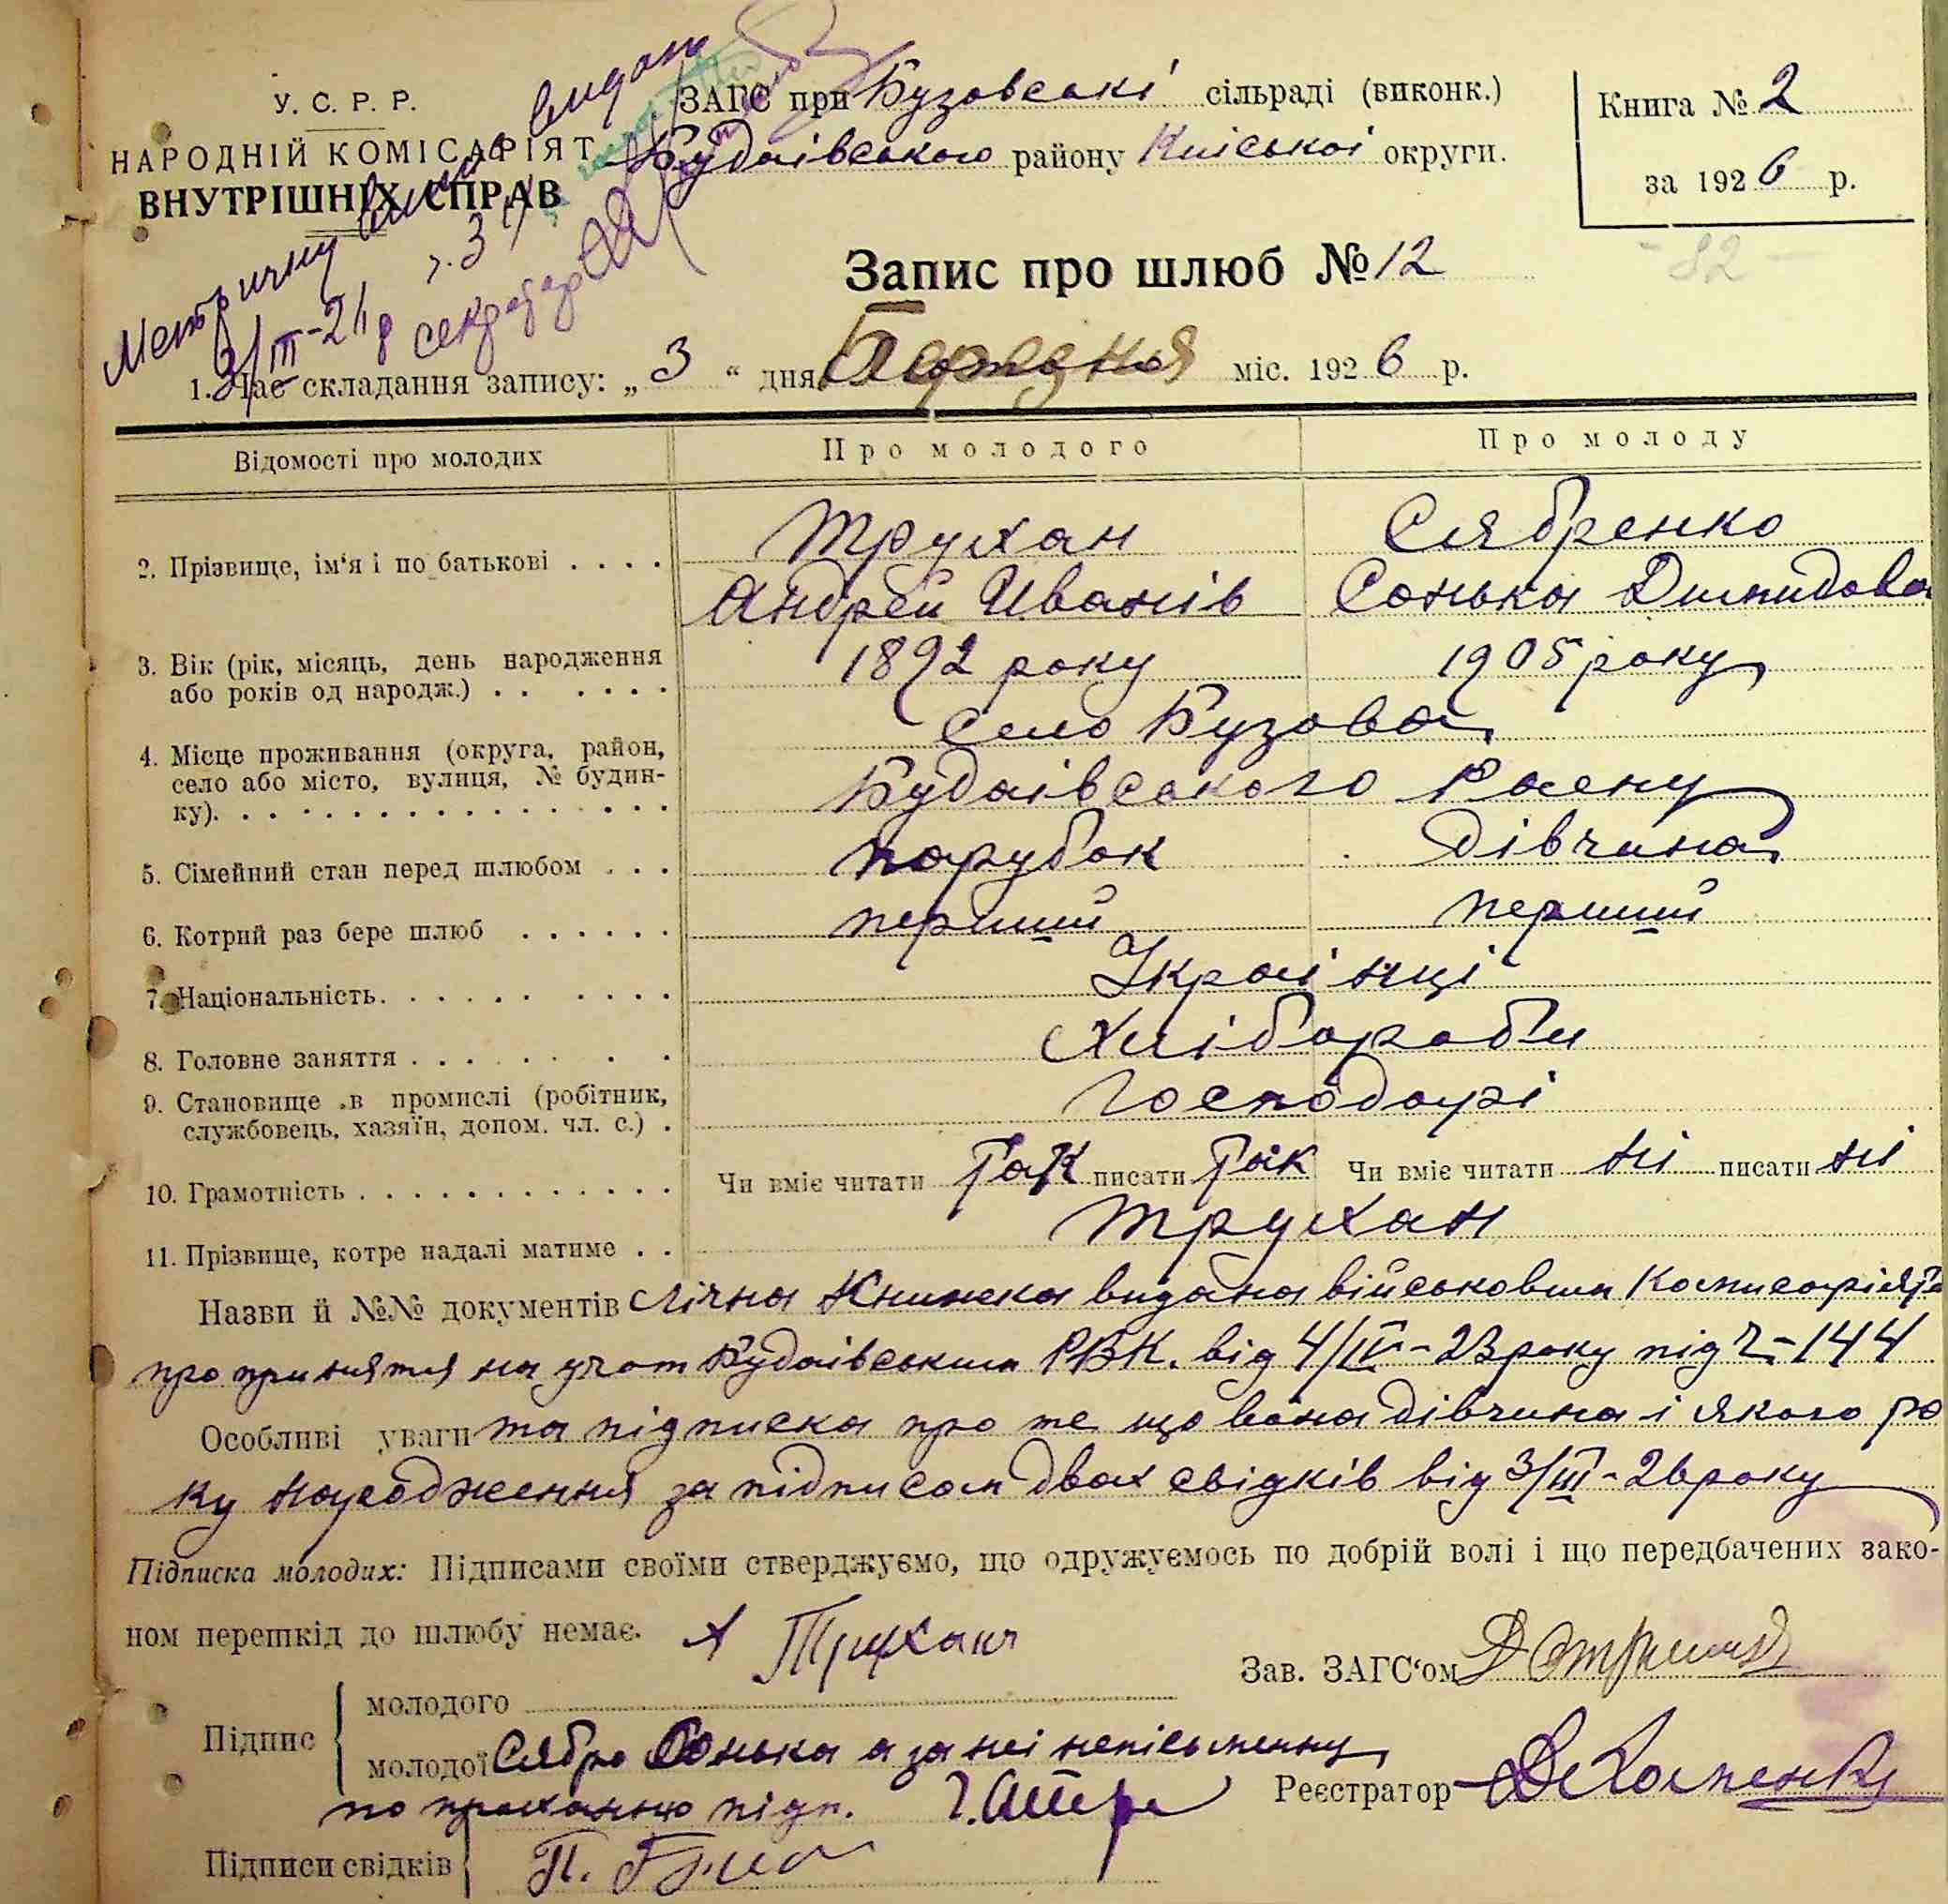 У. С. Р. Р.
НАРОДНІЙ КОМІСАРІЯТ
ВНУТРІШНІХ СПРАВ
Метричну видано
3/III-24 секретар
ЗАГС при Бузовські сільраді (виконк.)
Будаівського району Киіської округи.
Книга № 2
за 1926 р.
82
Запис про шлюб № 12
1. Час складання запису: „3“ дня Березня міс. 1926 р.
Відомості про молодих
Про молодого
Про молоду
2. Прізвище, ім'я і по батькові . . . .
Трухан
Андрей Иванів
Сябренко
Сонька Димидова
3. Вік (рік, місяць, день народження або років од народж.) . . . . . .
1892 року
1905 року
4. Місце проживання (округа, район, село або місто, вулиця, № будин-ку). . . . . . . . . . . . . . .
село Бузова
Будаівського Раену
5. Сімейний стан перед шлюбом . . .
парубок
дівчина
6. Котрий раз бере шлюб . . . . . .
перший
перший
7. Національність. . . . . . . . . .
Украінці
8. Головне заняття . . . . . . . .
Хлібороби
9. Становище в промислі (робітник, службовець, хазяїн, допом. чл. с.) .
Господарі
10. Грамотність . . . . . . . . . . . . .
Чи вміє читати Так писати Так
Чи вміє читати ні писати ні
11. Прізвище, котре надалі матиме . .
Трухан
Назви й №№ документів Лічна Книжка видана військовим Комисаріята
про приняття на учот Будаівським РВК. від 4/IV-23 року під №-144
Особливі уваги та підписка про те що вона дівчина і якого ро
ку народження за підписом двох свідків від 3/III-26 року
Підписка молодих: Підписами своїми стверджуємо, що одружуємось по добрій волі і що передбачених зако-
ном перешкід до шлюбу немає.
А Трухан
Зав. ЗАГС'ом
Підпис
молодого
молодої Сябро Сонька а за неі непісьменну
по проханню підп.
Реєстратор
Підписи свідків
П.